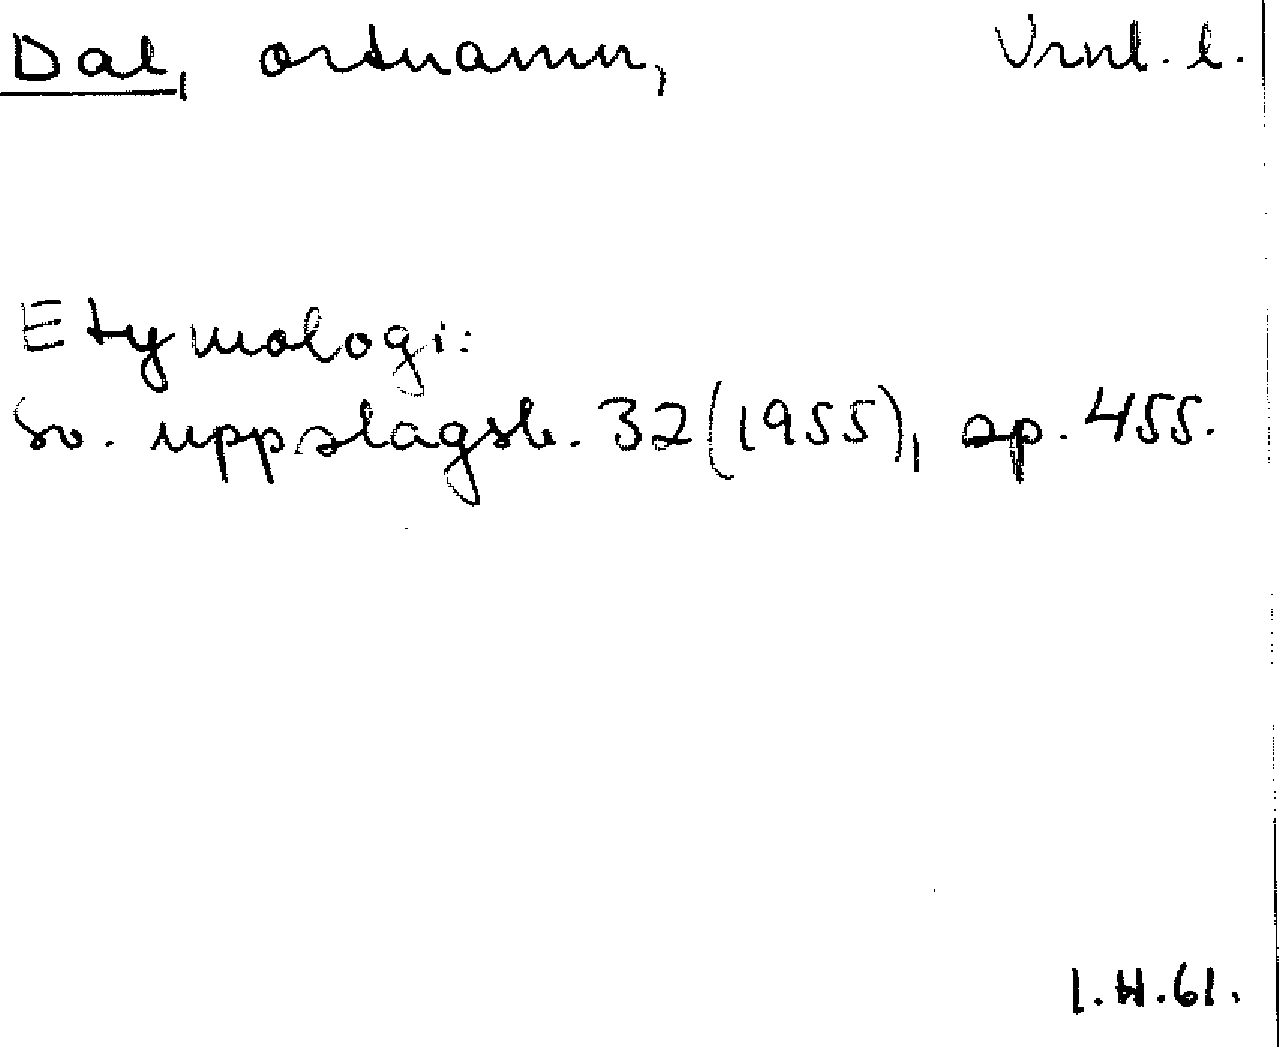 Dal, ortnamn, Vrml. l.
Etymologi:
Sv. uppslagsb. 32 (1955), sp. 455.
I.H.61.